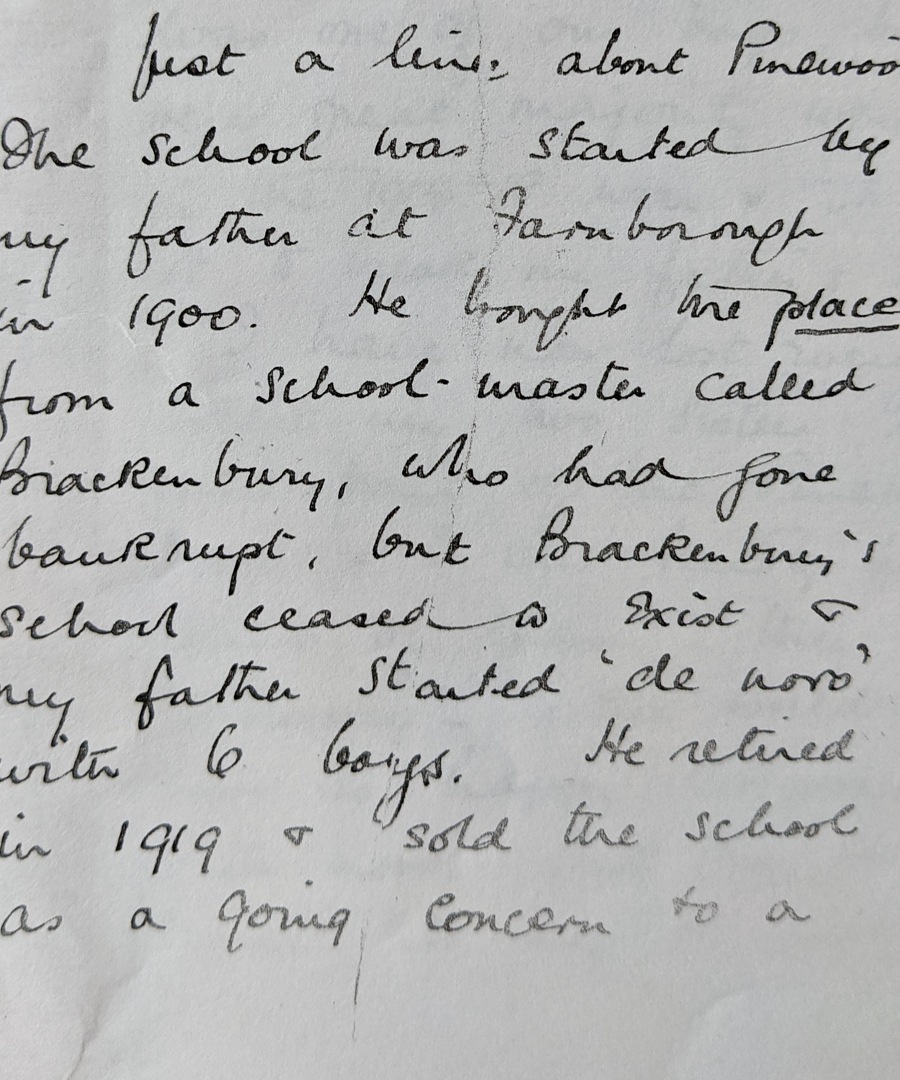 Just a line about Pinewoo
The school was started by
my father at Farnborough
in 1900. He bought the place
from a school-master called
Brackenbury, who had gone
bankrupt, but Brackenbury's
School ceased to exist &
my father started 'de novo'
with 6 boys. He retired
in 1919 & sold the school
as a going concern to a